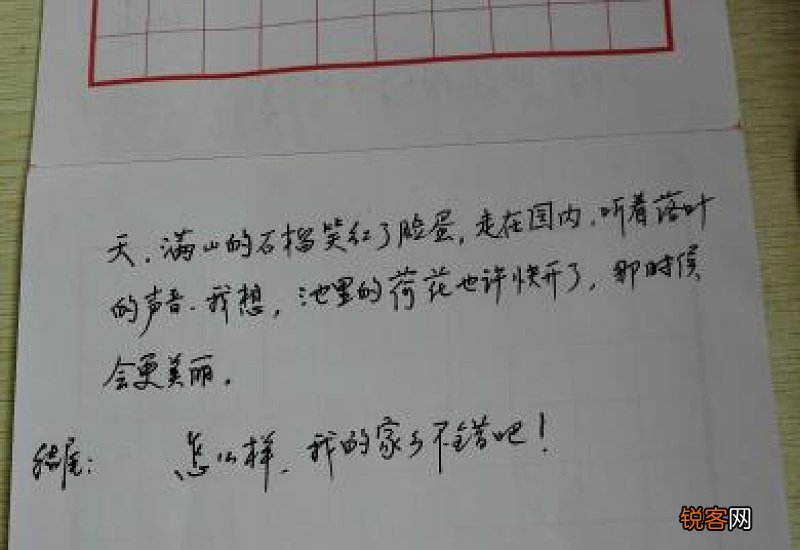 天,满山的石榴笑红了脸蛋,走在国内,听着落叶
的声音.我想,池里的荷花也许快开了,那时候
会更美丽.
结尾: 怎么样、我的家乡不错吧!
锐客网